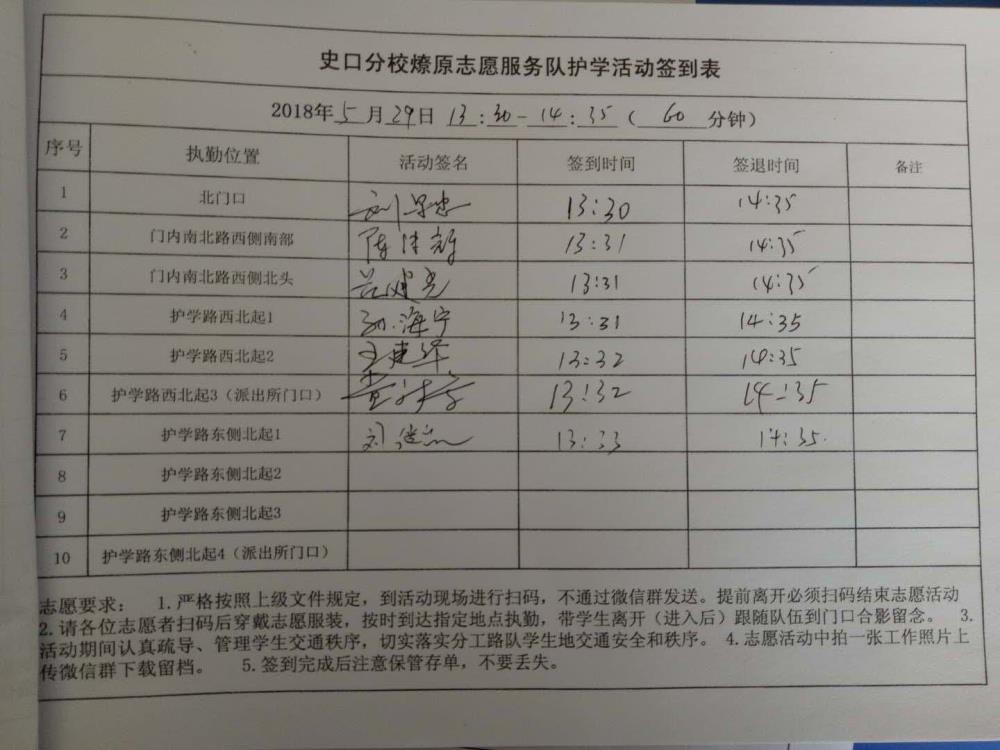 史口分校燎原志愿服务队护学活动签到表
2018年5月29日 13:30-14:35(60分钟)
序号 执勤位置 活动签名 签到时间 签退时间 备注
1 北门口 13:30 14:35
2 门内南北路西侧南部 13:31 14:35
3 门内南北路西侧北头 13:31 14:35
4 护学路西北起1 孙海宁 13:31 14:35
5 护学路西北起2 王建华 13:32 14:35
6 护学路西北起3（派出所门口） 13:32 14:35
7 护学路东侧北起1 13:33 14:35
8 护学路东侧北起2
9 护学路东侧北起3
10 护学路东侧北起4（派出所门口）
志愿要求： 1.严格按照上级文件规定，到活动现场进行扫码，不通过微信群发送。提前离开必须扫码结束志愿活动
2.请各位志愿者扫码后穿戴志愿服装，按时到达指定地点执勤，带学生离开（进入后）跟随队伍到门口合影留念。 3.
活动期间认真疏导、管理学生交通秩序，切实落实分工路队学生地交通安全和秩序。 4.志愿活动中拍一张工作照片上
传微信群下载留档。 5.签到完成后注意保管存单，不要丢失。